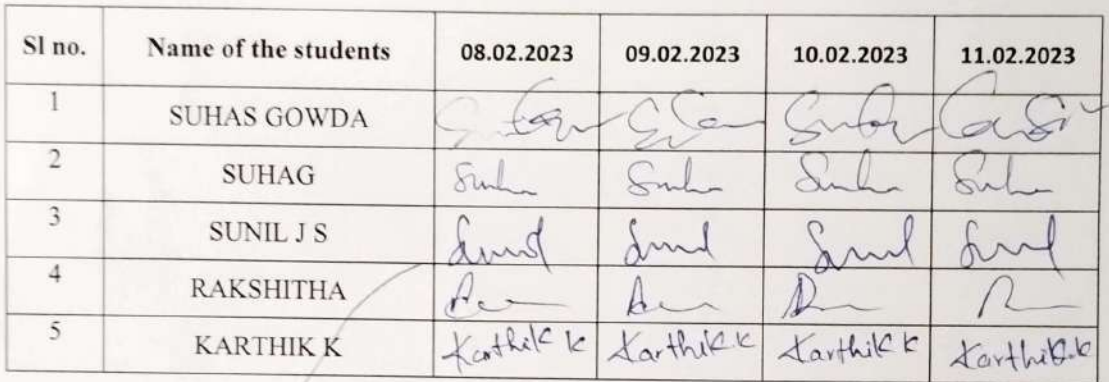 Sl no. Name of the students 08.02.2023 09.02.2023 10.02.2023 11.02.2023
1 SUHAS GOWDA
2 SUHAG
3 SUNIL J S Sunil Sunil Sunil Sunil
4 RAKSHITHA
5 KARTHIK K Karthik K Karthik K Karthik K Karthik.K